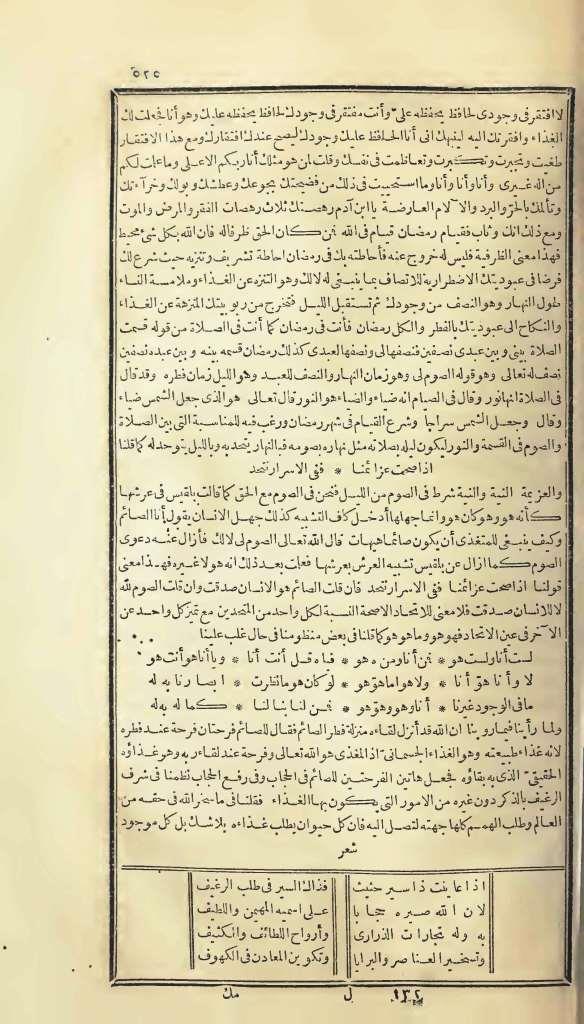 ٥٢٥
لا افتقر فى وجودى لحافظ يحفظه علىّ وأنت مفتقر فى وجودك لحافظ يحفظه عليك وهو أنا فجعلت لك
الغذاء وافقرتك اليه لينبهك انى أنا الحافظ عليك وجودك ليصح عندك افتقارك ومع هذا الافتقار
طغيت وتجبرت وتكبرت وتعاظمت فى نفسك وقلت لمن هو مثلك أنا ربكم الاعلى وما علمت لكم
من اله غيرى وأنا وأنا وأنا وما استحييت فى ذلك من فضيحتك بجوعك وعطشك وبولك وخرآءتك
وتألمك بالحرّ والبرد والآلام العارضة يا ابن آدم رهصتك ثلاث رهصات الفقر والمرض والموت
ومع ذلك انك وثاب فقيام رمضان قيام فى الله فمن كان الحق ظرفا له فان الله بكل شئ محيط
فهذا معنى الظرفية فليس له خروج عنه فأحاطته بك فى رمضان احاطة تشريف وتنزيه حيث شرع لك
فرضا فى عبوديتك الاضطرارية للاتصاف بما ينبغى له لا لك وهو التنزه عن الغذاء وملامسة النساء
طول النهار وهو النصف من وجودك ثم تستقبل الليل فتخرج من ربوبيتك المنزهة عن الغذاء
والنكاح الى عبوديتك بالفطر والكل رمضان فأنت فى رمضان كما أنت فى الصلاة من قوله قسمت
الصلاة بينى وبين عبدى نصفين فنصفها لى ونصفها لعبدى كذلك رمضان قسمه بينه وبين عبده نصفين
نصف له تعالى وهو قوله الصوم لى وهو زمان النهار والنصف للعبد وهو الليل زمان فطره وقد قال
فى الصلاة انها نور وقال فى الصيام انه ضياء والضياء هو النور قال تعالى هو الذى جعل الشمس ضياء
وقال وجعل الشمس سراجا وشرع القيام فى شهر رمضان ورغب فيه للمناسبة التى بين الصلاة
والصوم فى القسمة والنور ليكون ليله بصلاته مثل نهاره بصومه فبالنهار يتحد به وبالليل يتوحد له كما قلنا
اذا صحت عزائمنا * ففى الاسرار نتحد
والعزيمة النية والنية شرط فى الصوم من الليل فنحن فى الصوم مع الحق كما قالت بلقيس فى عرشها
كأنه هو وهو كان هو وانما جهلها أدخل كاف التشبيه كذلك جهل الانسان يقول أنا الصائم
وكيف ينبغى للمتغذى أن يكون صائما هيهات قال الله تعالى الصوم لى لا لك فأزال عنه دعوى
الصوم كما ازال عن بلقيس تشبيه العرش بعرشها فعلمت بعد ذلك انه هو لا غيره فهذا معنى
قولنا اذا صحت عزائمنا ففى الاسرار نتحد فان قلت الصائم هو الانسان صدقت وان قلت الصوم لله
لا للانسان صدقت فلا معنى للاتحاد الا صحة النسبة لكل واحد من المتحدين مع تميز كل واحد عن
الآخر فى عين الاتحاد فهو هو وما هو هو كما قلنا فى بعض منظومنا فى حال غلب علينا
لست أنا ولست هو * فمن أنا ومن هو هو * فيا هو قل أنت أنا * ويا أنا هو أنت هو
لا وأنا هو أنا * ولا هو ما هو هو * لو كان هو ما نظرت * ابصارنا به له
ما فى الوجود غيرنا * أنا وهو وهو هو * فمن لنا بنا لنا * كما له به له
ولما رأينا فيما روينا ان الله قد أنزل لقاءه منزلة فطر الصائم فقال للصائم فرحتان فرحة عند فطره
لانه غذاء طبيعته وهو الغذاء الجسمانى اذ المغذى هو الله تعالى وفرحة عند لقاء ربه وهو غذاؤه
الحقيقى الذى به بقاؤه فجعل هاتين الفرحتين للصائم فى الحجاب وفى رفع الحجاب نظمنا فى شرف
الرغيف بالذكر دون غيره من الامور التى يكون بها الغذاء فقلنا فى ما سخر الله فى حقه من
العالم وطلب الهمم كلها جهته لتصل اليه فان كل حيوان يطلب غذاءه بلا شك بل كل موجود
شعر
اذا عاينت ذا سير حثيث فذاك السير فى طلب الرغيف
لان الله صيره حجابا على اسميه المهيمن واللطيف
به وله تجارات الذرارى وأرواح اللطائف والكثيف
وتسخير العناصر والبرايا وتكوين المعادن فى الكهوف
١٣٢ ل مك